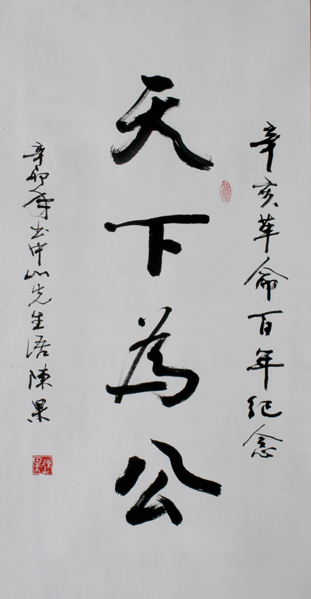 辛亥革命百年纪念
天下為公
辛卯年书中山先生语陳果